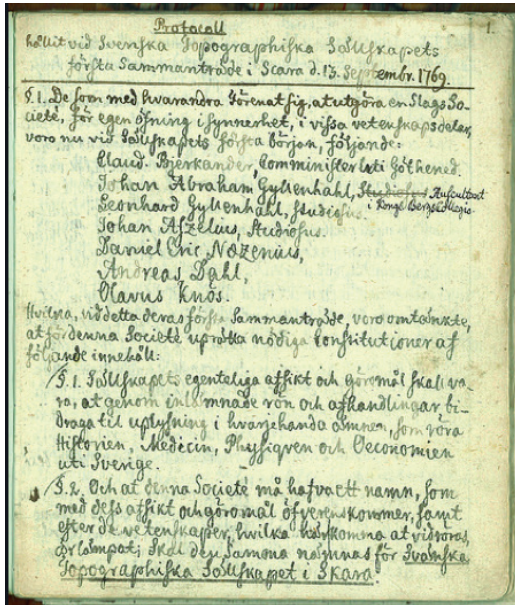 Protocoll
1.
hållit vid Svenska Topographiska Sällskapets
första Sammanträde i Scara d. 13. Septembr. 1769.
§. 1. De som med hvarandra förenat sig, at utgöra en Slags So-
cieté, för egen öfning i synnerhet, i vissa vetenskapsdelar,
voro nu vid Sällskapets första början, följande:
Claud. Bjerkander, Comminister uti Göthened.
Johan Abraham Gyllenhahl, Studiosus Auscultant
i Kongl. Bergscollegio
Leonhard Gyllenhahl, Studiosus.
Johan Afzelius, Studiosus.
Daniel Eric Næzenius,
Andreas Dahl,
Olavus Knös.
Hvilna, vid detta deras första Sammanträde, voro omtänkte,
at för denna Societé uprätta nödiga Constitutioner af
följande innehåll:
§. 1. Sällskapets egenteliga afsikt och göromål skall va-
ra, at genom inlämnade rön och afhandlingar bi-
draga til uplysning i hvarjehanda ämnen, som röra
Historien, Medicin, Physiqven och Oeconomien
uti Sverige.
§. 2. Och at denna Societé må hafva ett namn, som
med dess afsikt och göromål öfverenskommer, samt
efter de vetenskaper, hvilka härkomma at vidröras,
är lämpat; skal den samma nämnas för Svänska
Topographiska Sällskapet i Skara.